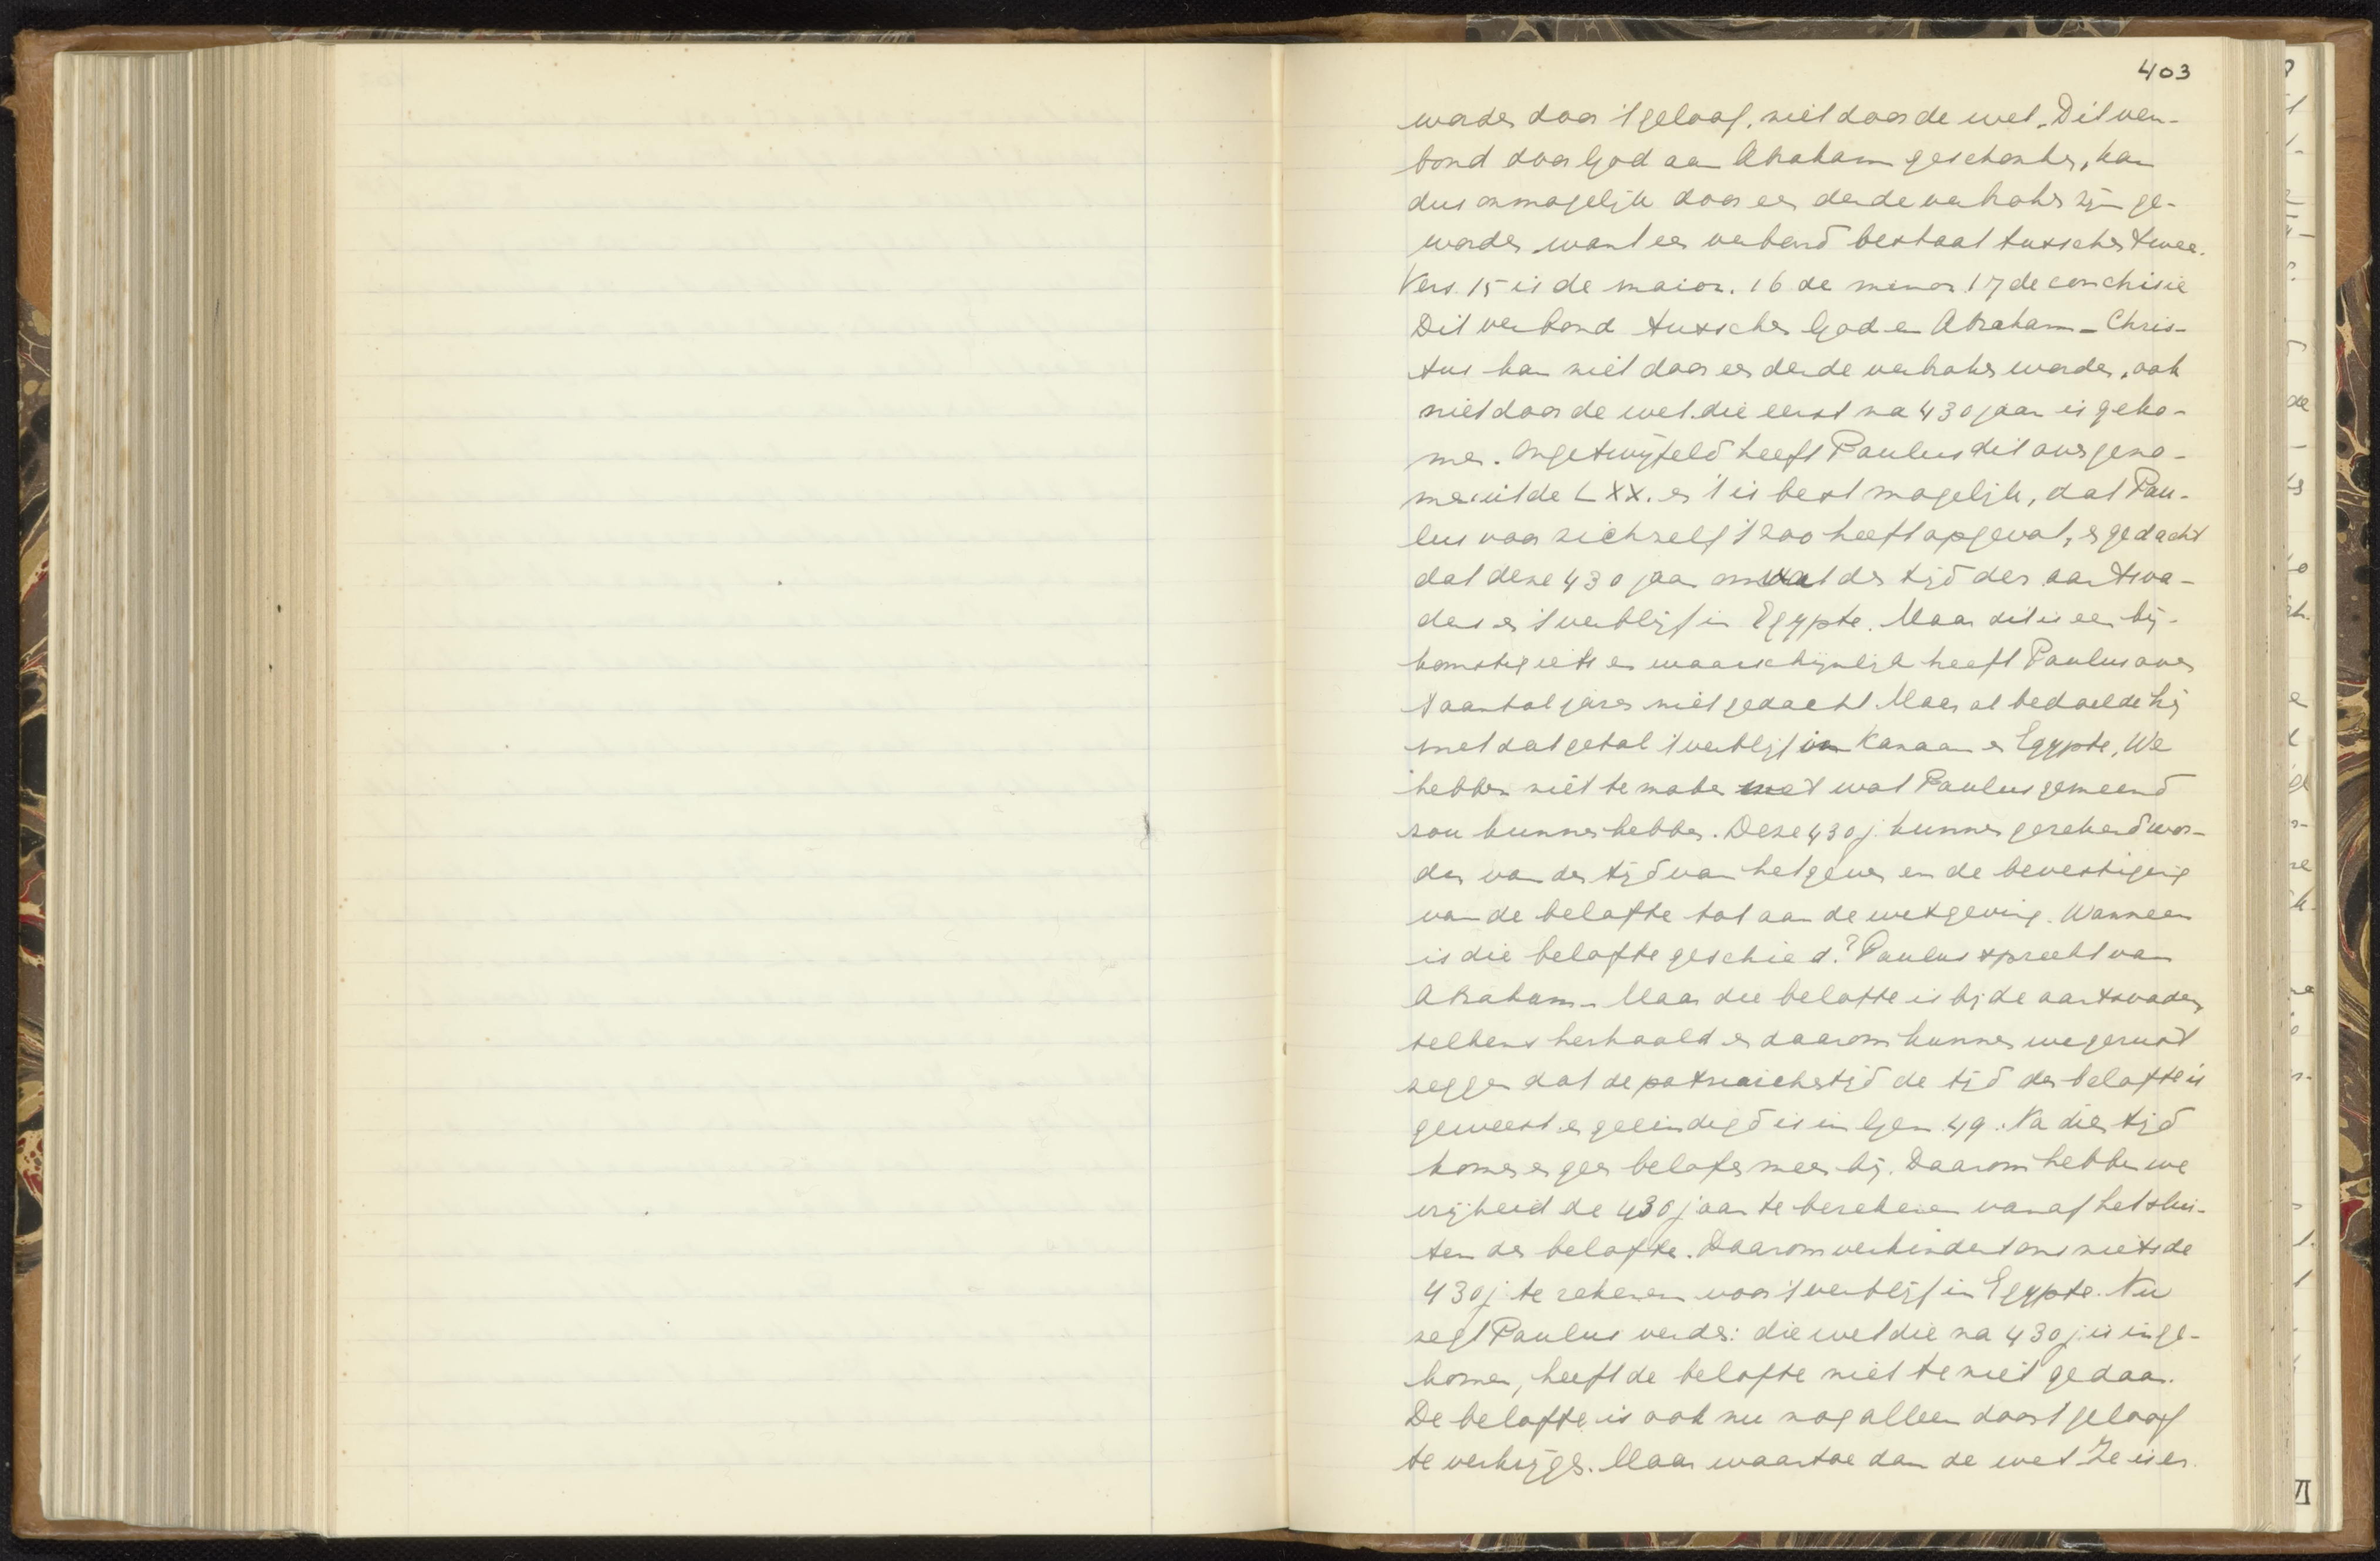 403
worden door 't geloof, niet door de wet. Dit ver-
bond door God aan Abraham geschonken, kan
dus onmogelijk door een derde verbroken zijn ge-
worden want een verbond bestaat tusschen twee.
Vers. 15 is de maior. 16 de minor 17 de conclusie
Dit verbond tusschen God en Abraham - Chris-
tus kan niet door een derde verbroken worden, ook
niet door de wet die eerst na 430 jaar is geko-
men. Ongetwijfeld heeft Paulus dit overgeno-
men uit de LXX. en 't is best mogelijk, dat Pau-
lus voor zichzelf 't zoo heeft opgevat, en gedacht
dat deze 430 jaar omvat den tijd der aartsva-
ders en 't verblijf in Egypte. Maar dit is een bij-
komstig iets en waarschijnlijk heeft Paulus over
't aantal jaren niet gedacht. Maar al bedoelde hij
met dat getal 't verblijf in Kanaan en Egypte, We
hebben niet te maken met wat Paulus gemeend
zou kunnen hebben. Deze 430 j. kunnen gerekend wor-
den van den tijd van het geven en de bevestiging
van de belofte tot aan de wetgeving. Wanneer
is die belofte geschied? Paulus spreekt van
Abraham - Maar die belofte is bij de aartsvaders
telkens herhaald en daarom kunnen we gerust
zeggen dat de patriarchentijd de tijd der belofte is
geweest en geeindigd is in Gen 49. Na dien tijd
komen er geen beloften meer bij. Daarom hebben we
vrijheid de 430 jaar te berekenen vanaf het slui-
ten der belofte. Daarom verhindert ons niets de
430 j. te rekenen voor 't verblijf in Egypte. Nu
zegt Paulus verder: die wet die na 430 j. is inge-
komen, heeft de belofte niet te niet gedaan.
De belofte is ook nu nog alleen door 't geloof
te verkrijgen. Maar waartoe dan de wet Ze is er